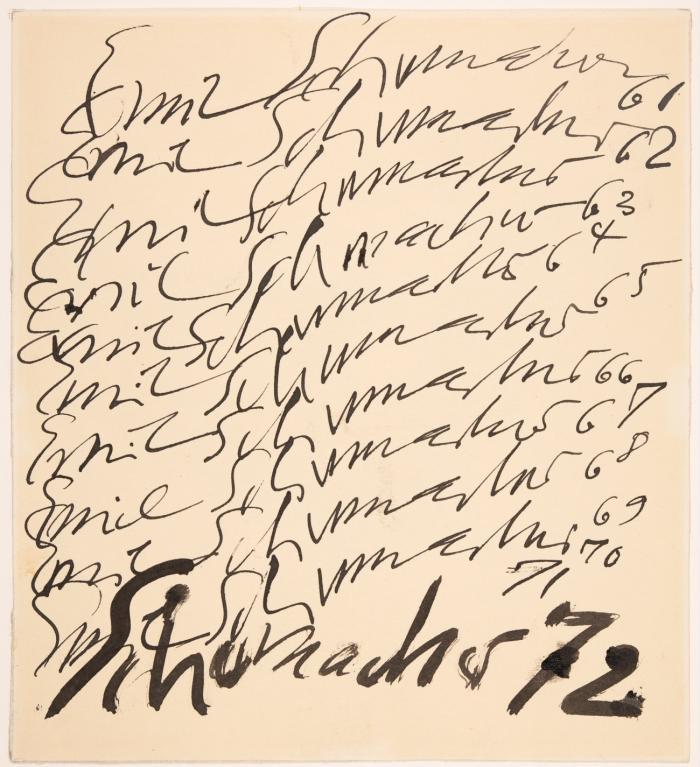 Emil Schumacher 61
Emil Schumacher 62
Emil Schumacher 63
Emil Schumacher 64
Emil Schumacher 65
Emil Schumacher 66
Emil Schumacher 67
Emil Schumacher 68
Emil Schumacher 69
Emil Schumacher 70
71
Schumacher 72